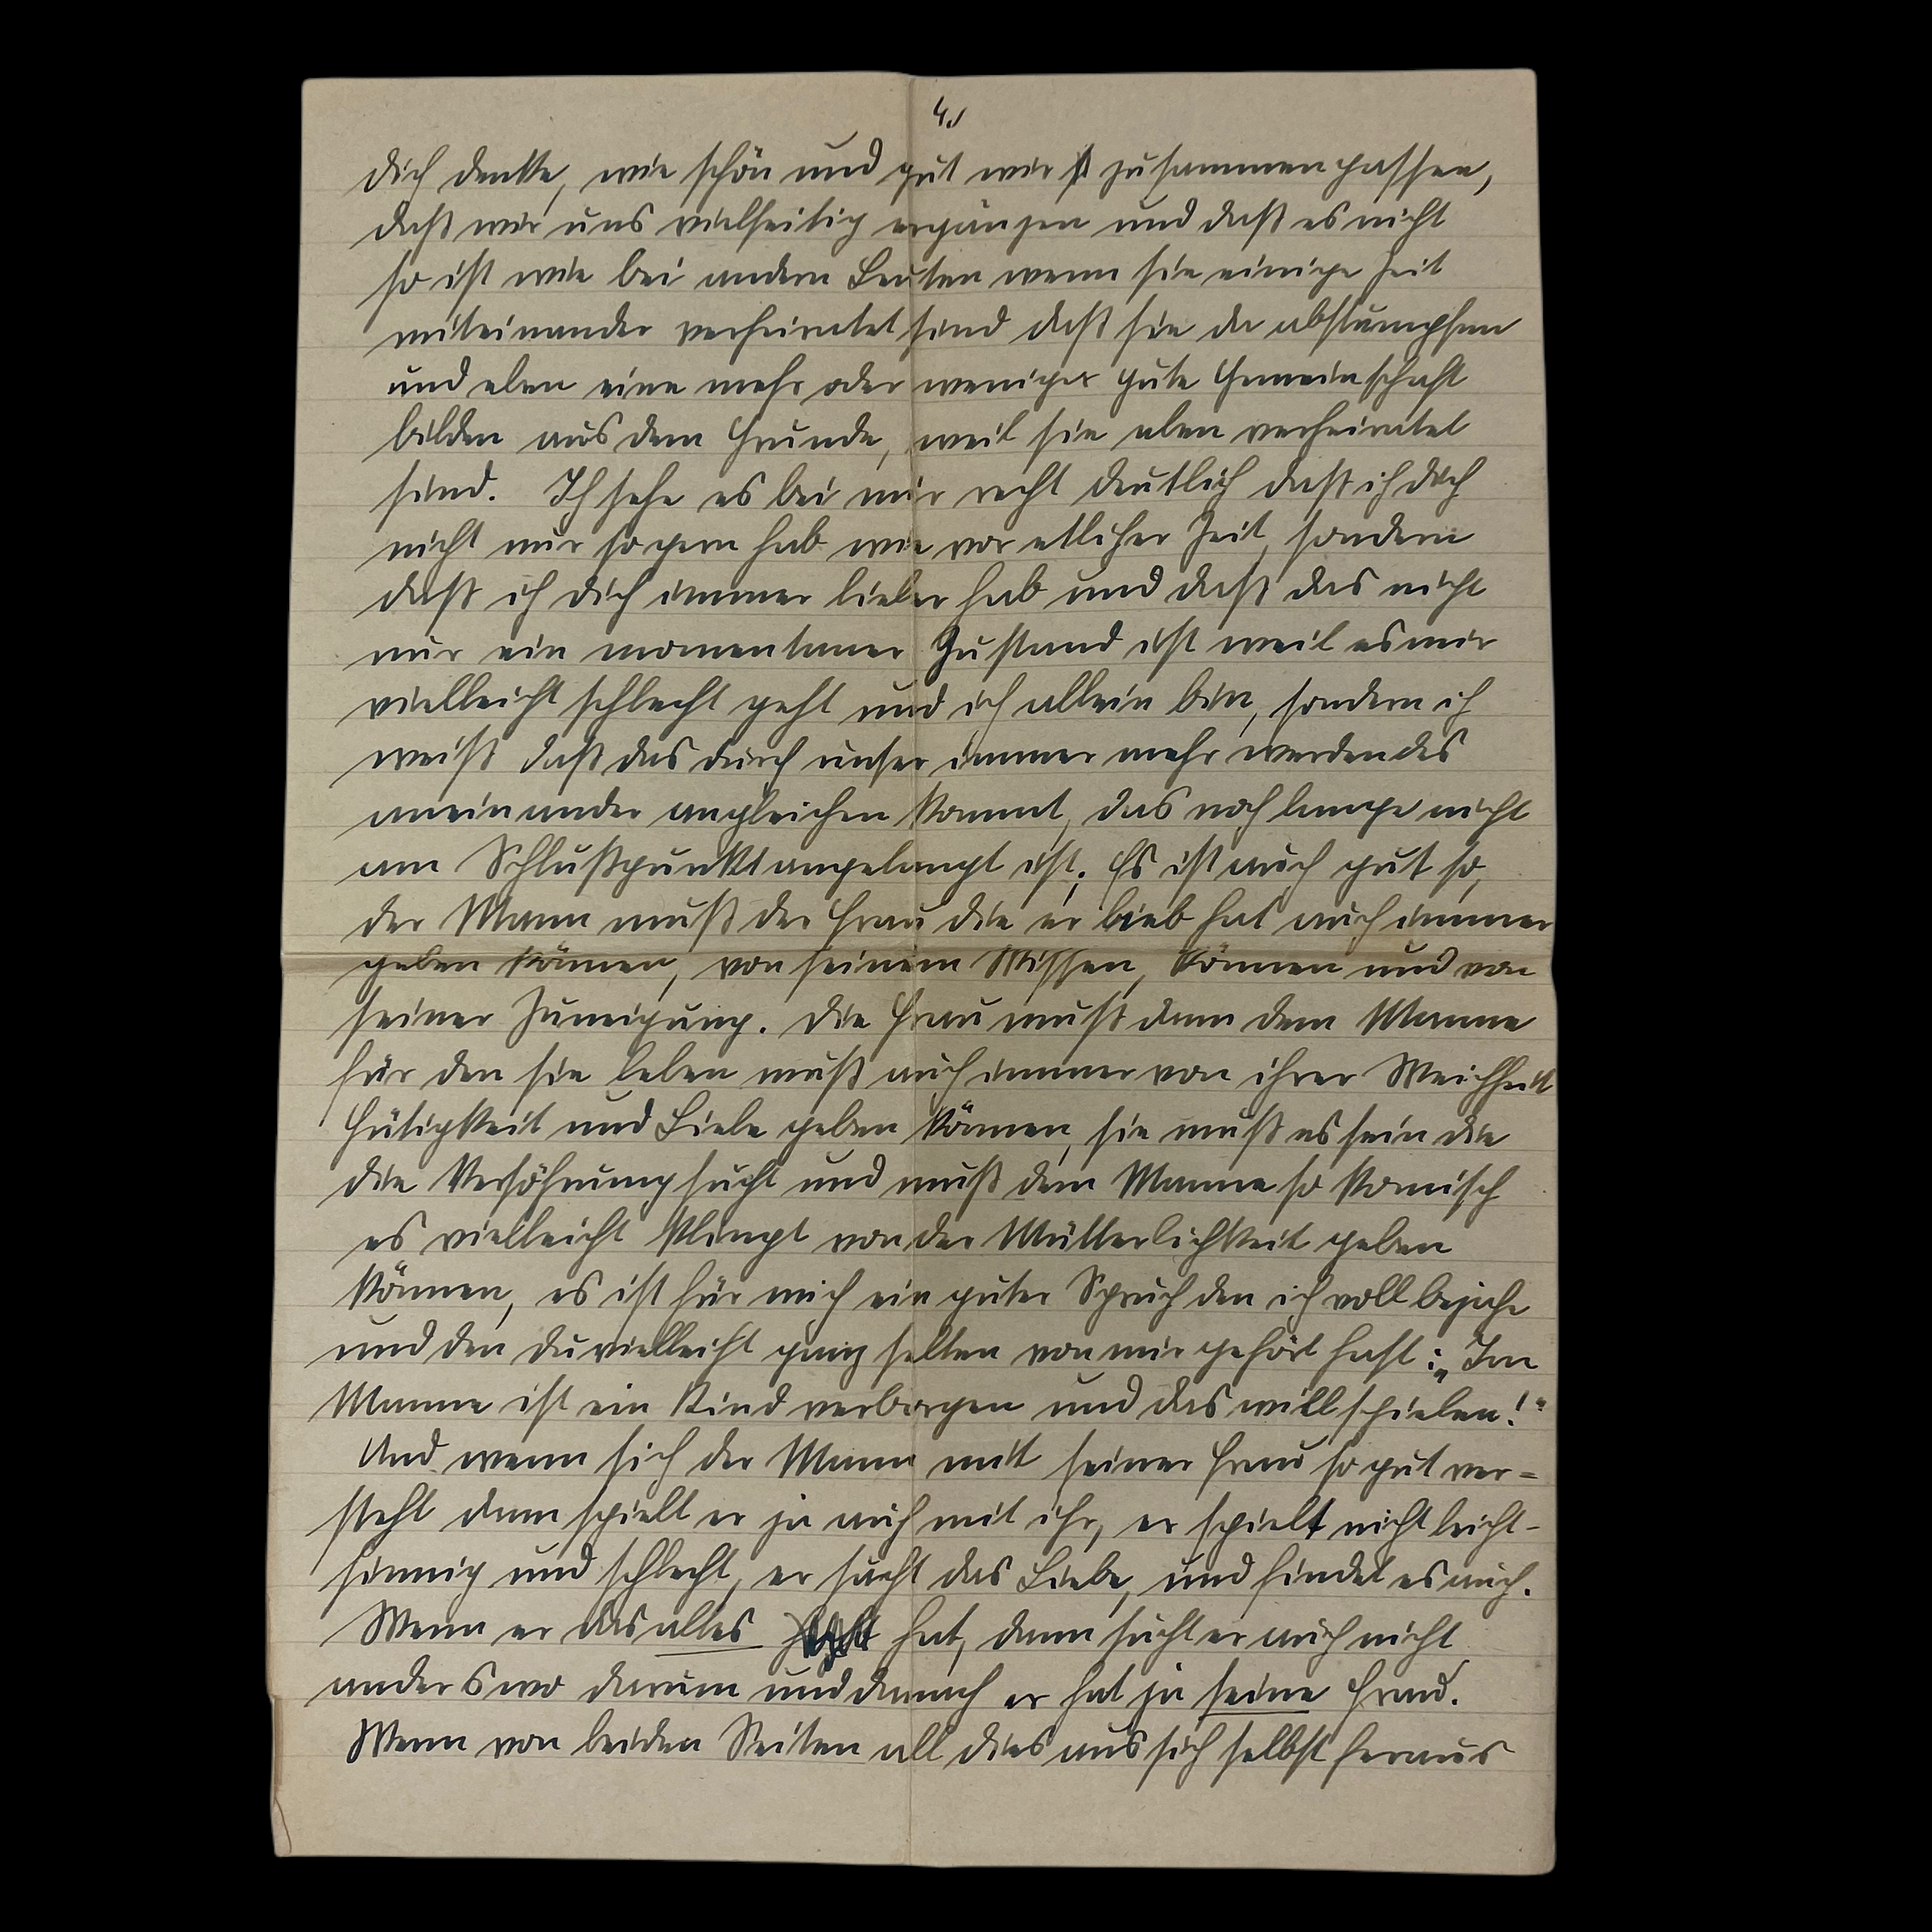 4.)
dich denke, wie schön und gut wir zusammen passen,
daß wir uns vielseitig ergänzen und daß es nicht
so ist wie bei andern Leuten wenn sie einige Zeit
miteinander verheiratet sind daß sie da abstumpfen
und eben eine mehr oder weniger gute Gemeinschaft
bilden aus dem Grunde, weil sie eben verheiratet
sind. Ich sehe es bei mir recht deutlich daß ich dich
nicht nur so gern hab wie vor etlicher Zeit, sondern
daß ich dich immer lieber hab und daß das nicht
nur ein momentaner Zustand ist weil es mir
vielleicht schlecht geht und ich allein bin, sondern ich
weiß daß das durch unser immer mehr werdendes
aneinander angleichen kommt, das noch lange nicht
am Schlußpunkt angelangt ist. Es ist auch gut so,
der Mann muß der Frau die er lieb hat auch immer
geben können, von seinem Wissen, Können und von
seiner Zuneigung. Die Frau muß dann dem Manne
für den sie leben muß auch immer von ihrer Weichheit
Gütigkeit und Liebe geben können, sie muß es sein die
die Versöhnung sucht und muß dem Manne so komisch
es vielleicht klingt von der Mütterlichkeit geben
können, es ist für mich ein guter Spruch den ich voll bejahe
und den du vielleicht ganz selten von mir gehört hast: „Im
Manne ist ein Kind verborgen und das will spielen!"
Und wenn sich der Mann mit seiner Frau so gut ver=
steht dann spielt er ja auch mit ihr, er spielt nicht leicht-
sinnig und schlecht, er sucht das Liebe, und findet es auch.
Wenn er das alles hat, dann sucht er auch nicht
anderswo darum und danach er hat ja seine Frau.
Wenn von beiden Seiten all dies aus sich selbst heraus